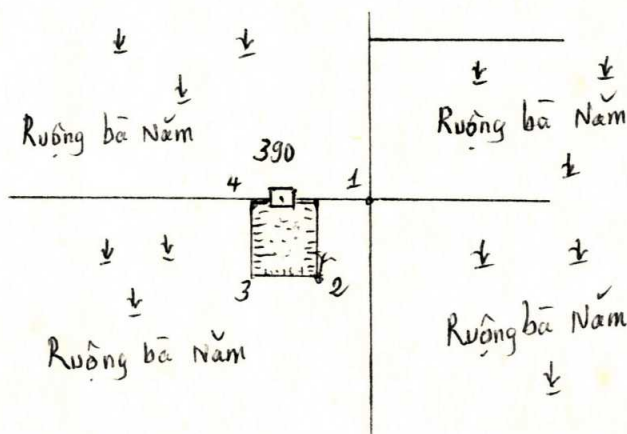 Ruộng bà Năm
Ruộng bà Năm
390
4
1
3
2
Ruộng bà Năm
Ruộng bà Năm